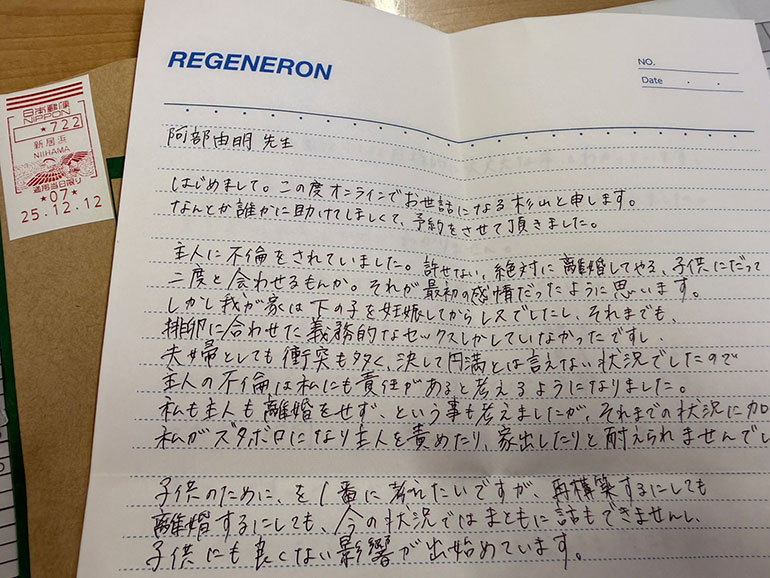 REGENERON
NO.
Date . .
日本郵便
NIPPON
*722
新居浜
NIIHAMA
適用当日限り
*07*
25.12.12
阿部由明 先生
はじめまして。この度オンラインでお世話になる杉山と申します。
なんとか誰かに助けてほしくて、予約をさせて頂きました。
主人に不倫をされていました。許せない、絶対に離婚してやる、子供にだって
二度と会わせるもんか。それが最初の感情だったように思います。
しかし我が家は下の子を妊娠してからレスでしたし、それまでも、
排卵に合わせた義務的なセックスしかしていなかったですし、
夫婦としても衝突も多く、決して円満とは言えない状況でしたので
主人の不倫は私にも責任があると考えるようになりました。
私も主人も離婚をせず、という事も考えましたが、それまでの状況に加
私がズタボロになり主人を責めたり、家出したりと耐えられませんでし
子供のために、を1番に考えたいですが、再構築するにしても
離婚するにしても、今の状況ではまともに話もできませんし、
子供にも良くない影響が出始めています。